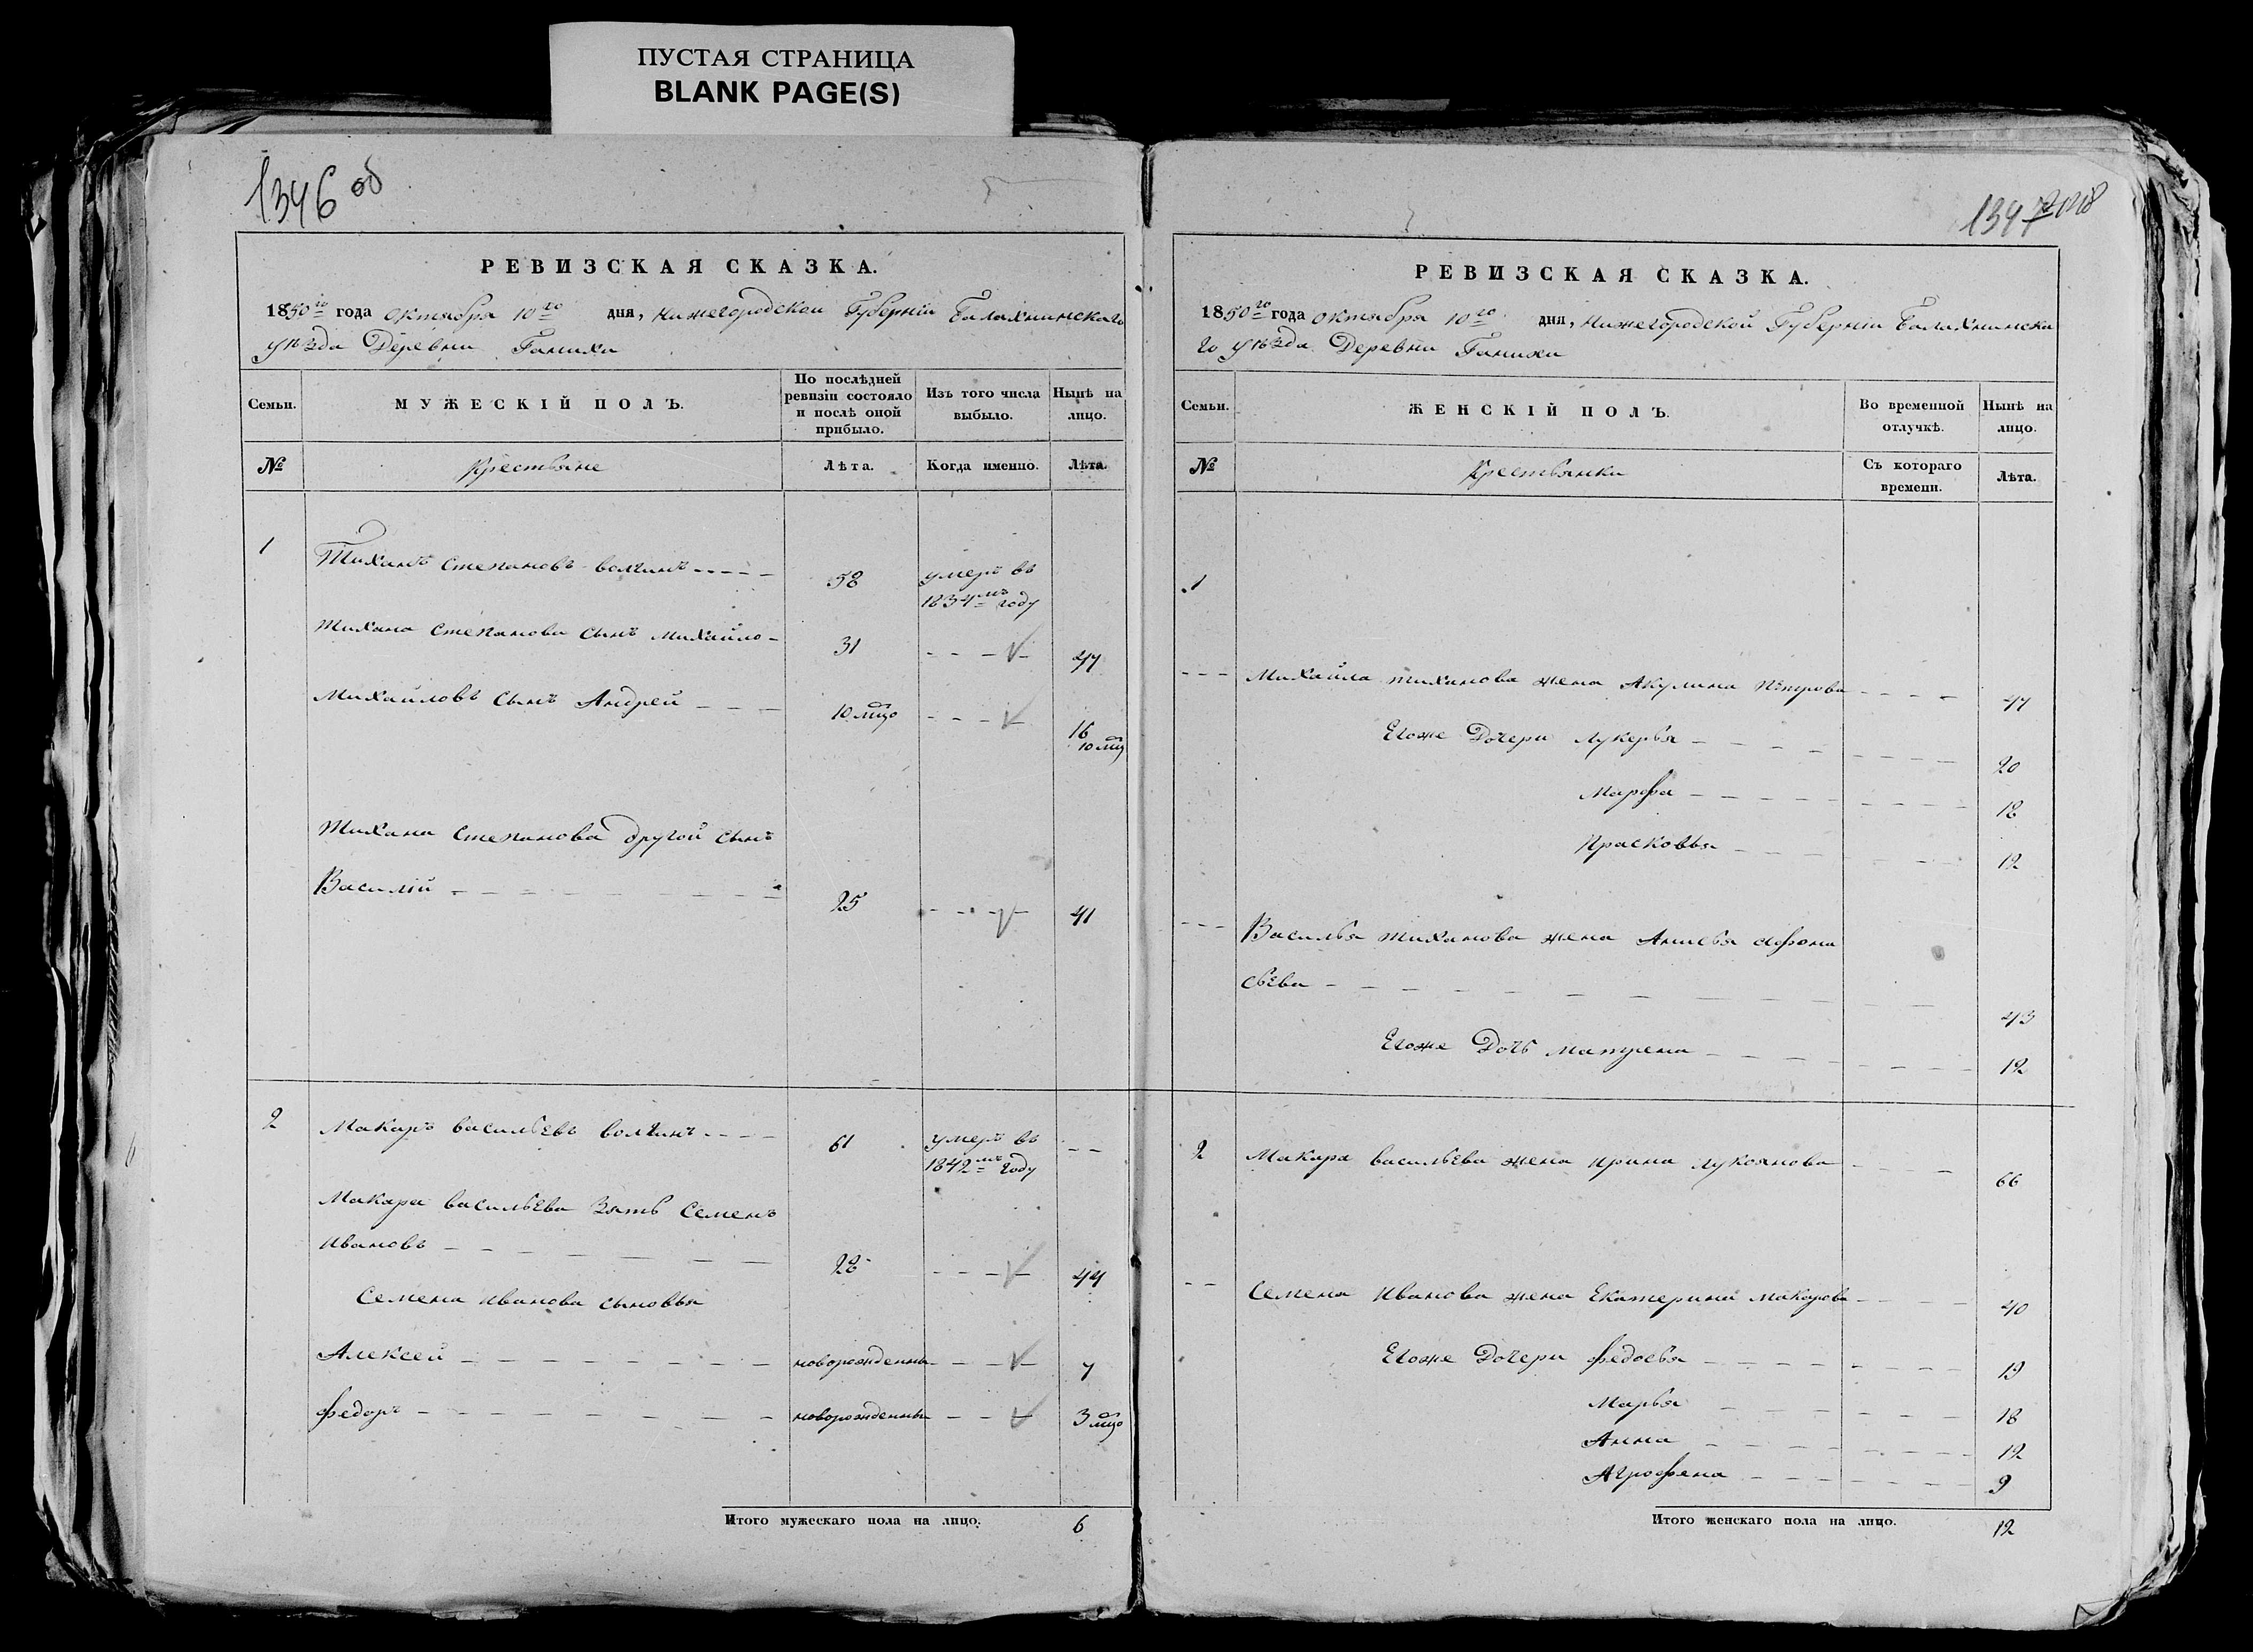 ПУСТАЯ СТРАНИЦА
BLANK PAGE(S)
1346 об
РЕВИЗСКАЯ СКАЗКА.
1850го года Октября 10го дня, Нижегородской Губерніи Балахнинскаго
уѣзда Деревни Ганиха
Семьи.
МУЖЕСКІЙ ПОЛЪ.
По послѣдней ревизіи состояло и послѣ оной прибыло.
Изъ того числа выбыло.
Нынѣ на лицо.
№
Крестьяне
Лѣта.
Когда именно.
Лѣта.
1
Тиханъ Степановъ волчинъ - - - - 58 умеръ въ
1834мъ году
Тихана Степанова сынъ Михайло - 31 - - - 47
Михайловъ сынъ Андрей - - - 10 мцо - - - 16
10 мц
Тихана Степанова другой сынъ
Василій - - - - - - - 25 - - - 41
2 Макаръ васильевъ волчинъ - - - - 61 умеръ въ - -
1842мъ году
Макара васильева Зять Семенъ
Ивановъ - - - - - - - 28 - - - - 44
Семена Иванова сыновья
Алексей - - - - - - - - новорожденны - - - 7
Федоръ - - - - - - - - новорожденны - - - 3 мцо
Итого мужескаго пола на лицо. 6
1347
РЕВИЗСКАЯ СКАЗКА.
1850го года Октября 10го дня, Нижегородской Губерніи Балахнинска
го уѣзда Деревни Ганихи
Семьи.
ЖЕНСКІЙ ПОЛЪ.
Во временной отлучкѣ.
Нынѣ на лицо.
№
Крестьянки
Съ котораго времени.
Лѣта.
1
- - - Михайла тиханова жена Акулина Петрова - - - - 47
Егоже Дочери Лукерья - - - - - - - - 20
Марфа - - - - - - - - 18
Прасковья - - - - - - - 12
- - - Василья тиханова жена Анисья Афона
сьева - - - - - - - - - - 43
Егоже Дочь Матрена - - - - - - - 12
2 Макара васильева жена Ирина Лукоянова - - 66
- - Семена Иванова жена Екатерина Макарова - - - - 40
Егоже Дочери Федосья - - - - - - - - 19
Марья - - - - - - - 18
Анна - - - - - - - 12
Агрофена - - - - - - - 9
Итого женскаго пола на лицо. 12